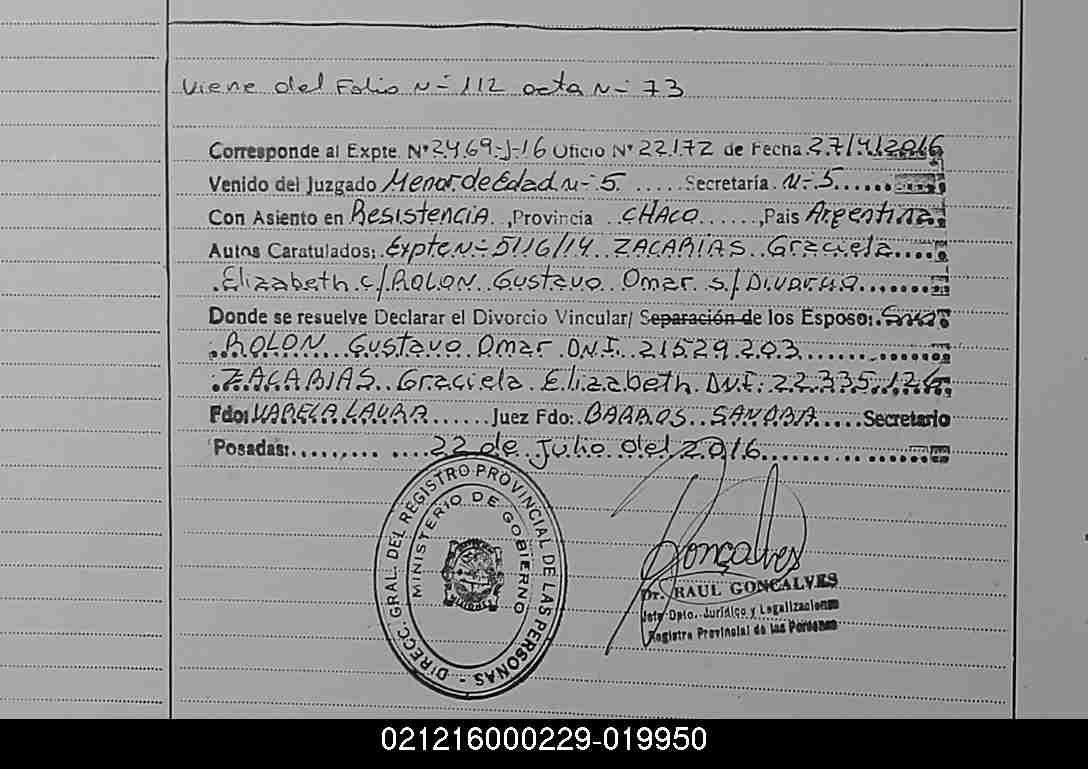 Viene del Folio N- 112 acta N- 73
Corresponde al Expte. N° 2469-J-16 Oficio N° 22172 de Fecha 27/4/2016
Venido del Juzgado Menor de Edad N- 5 ..... Secretaría. N- 5......
Con Asiento en Resistencia .,Provincia .. CHACO ......,Pais Argentina.
Autos Caratulados: Expte N- 5116/14 ZACARIAS Graciela.....
Elizabeth c/ ROLON Gustavo Omar s/ Divorcio.......
Donde se resuelve Declarar el Divorcio Vincular/ Separación de los Esposo:.
ROLON Gustavo Omar D.N.I. 21529.203.......
ZACARIAS Graciela Elizabeth D.N.I: 22.335.126.
Fdo: VARELA LAURA ...... Juez Fdo: BARROS SANDRA ..... Secretario
Posadas:......... .... 22 de Julio del 2016.......
DIRECC. GRAL. DEL REGISTRO PROVINCIAL DE LAS PERSONAS -
MINISTERIO DE GOBIERNO
Goncalves
Dr. RAUL GONCALVES
Jefe Dpto. Jurídico y Legalizaciones
Registro Provincial de las Personas
021216000229-019950